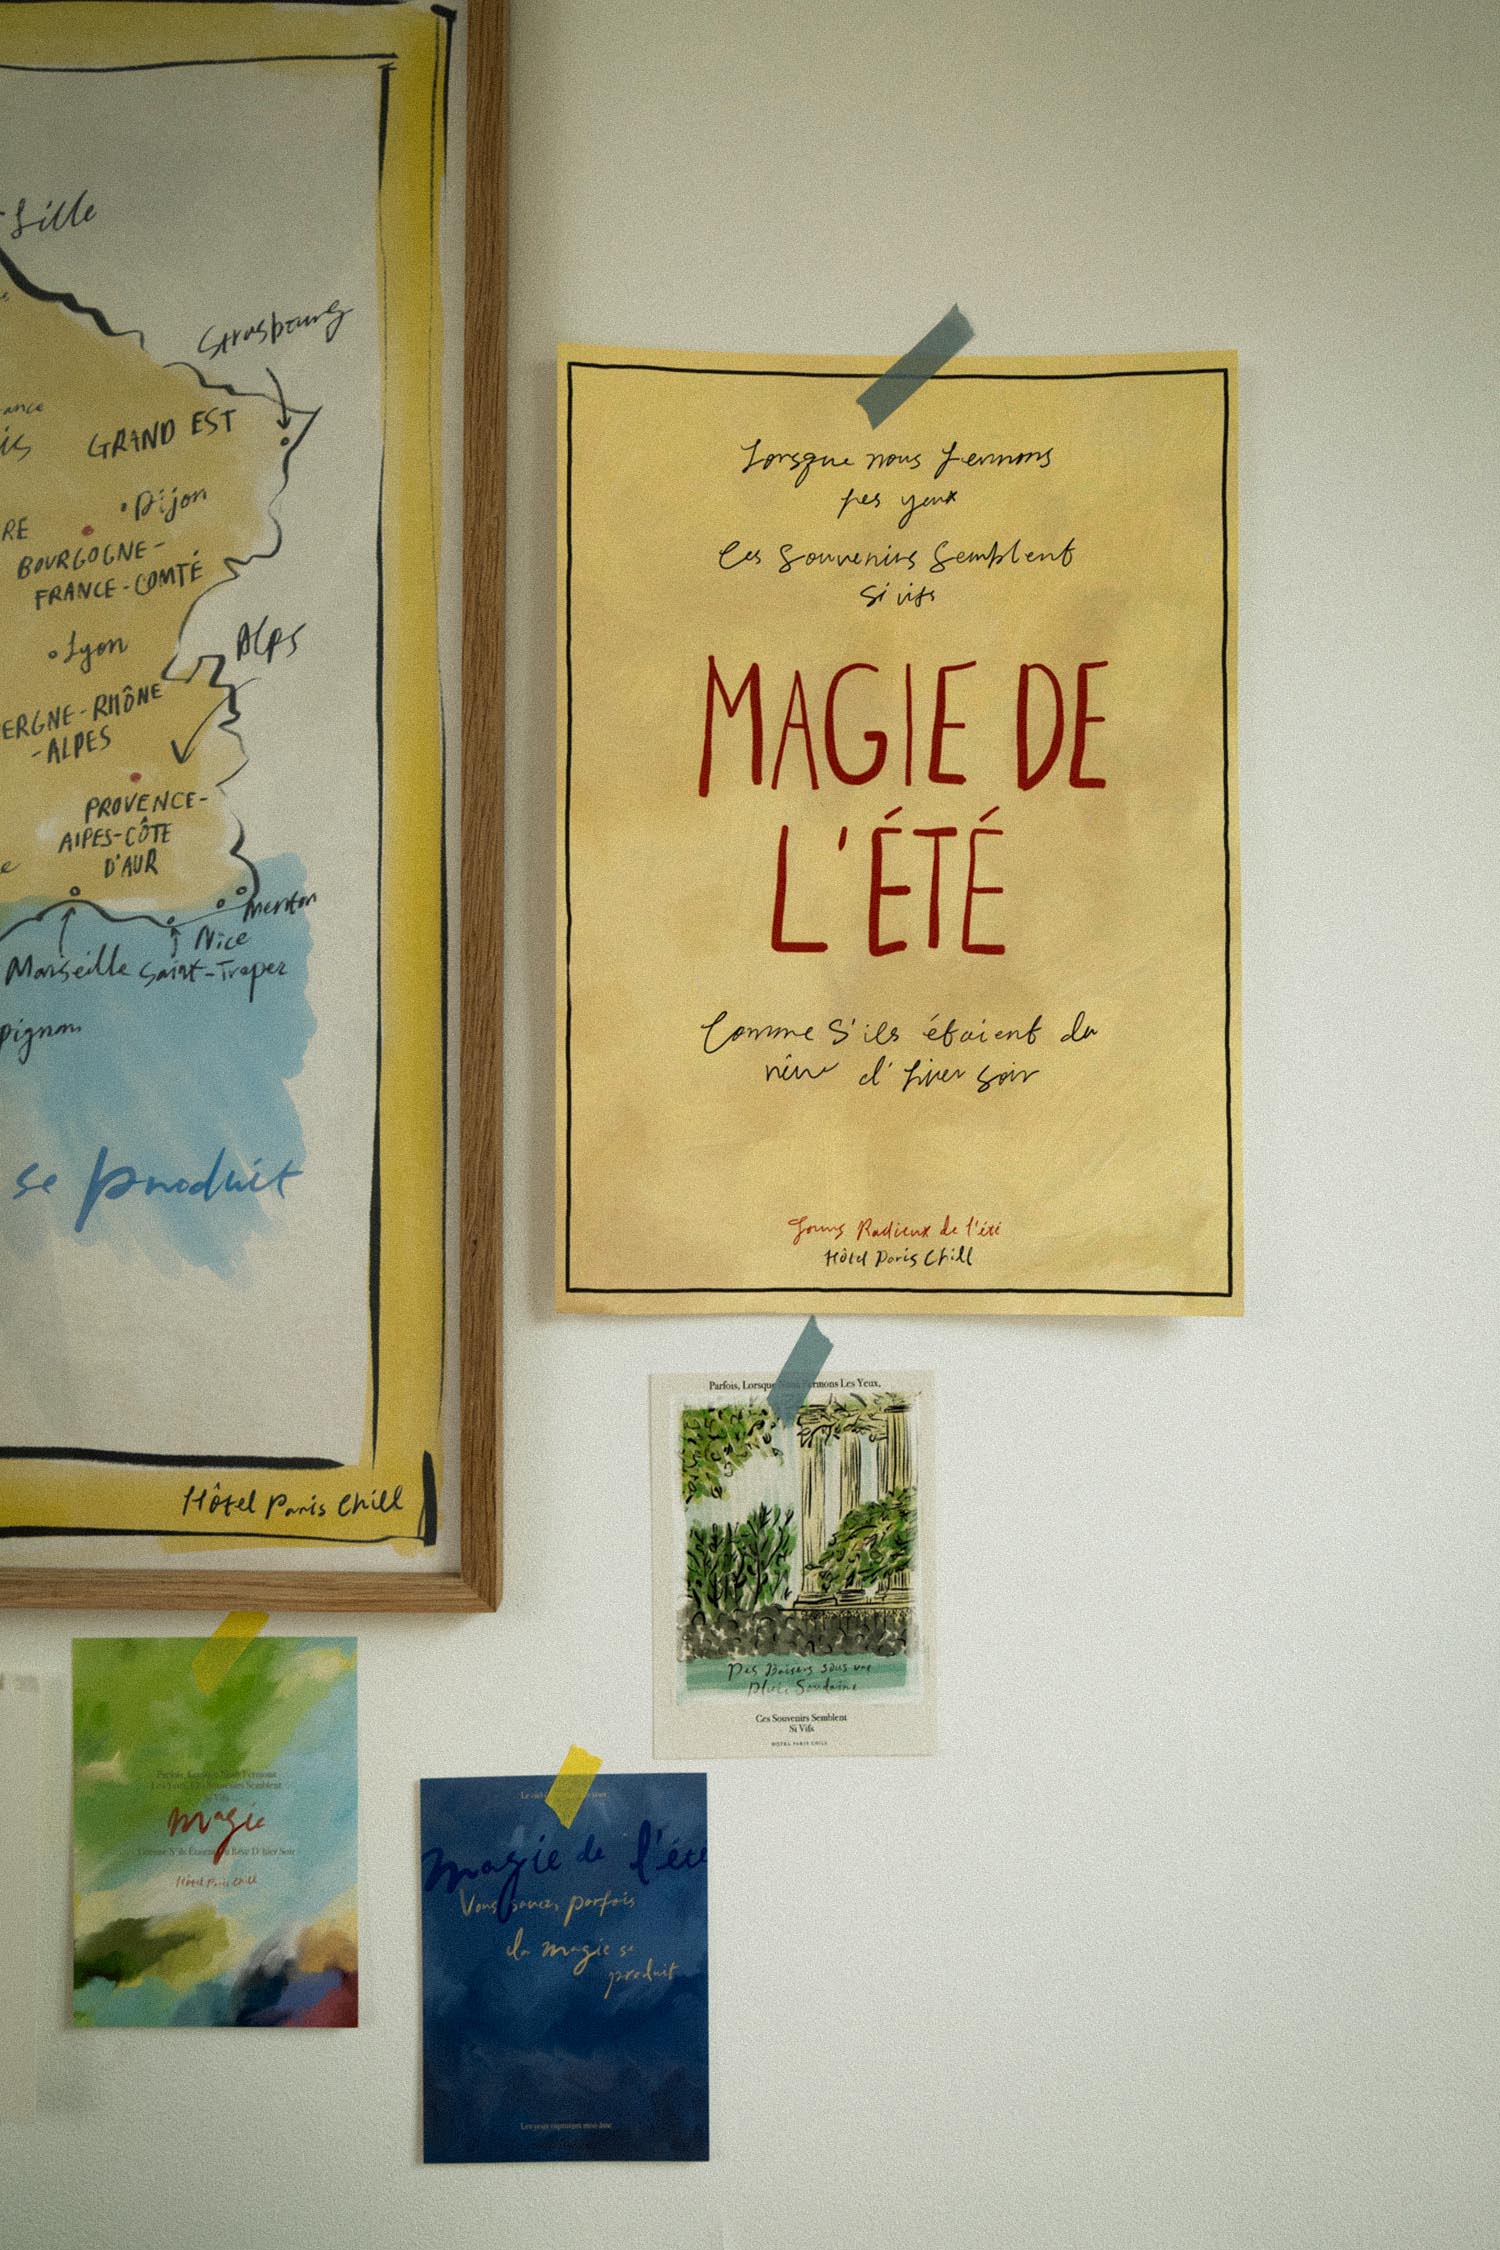 Lille
Strasbourg
GRAND EST
Dijon
BOURGOGNE-
FRANCE-COMTÉ
Lyon
ALPS
-RHÔNE
-ALPES
PROVENCE-
AlPES-CÔTE
D'AUR
Menton
Nice
Marseille Saint-Tropez
se produit
Hôtel Paris Chill
Lorsque nous fermons
les yeux
Ces Souvenirs Semblent
Si vifs
MAGIE DE
L'ÉTÉ
Comme S'ils étaient du
rêve d'hier soir
Jours Radieux de l'été
Hôtel Paris Chill
Parfois, Lorsque Nous Fermons Les Yeux,
Des Baisers sous une
Pluie Soudaine
Ces Souvenirs Semblent
Si Vifs
HOTEL PARIS CHILL
Parfois, Lorsque Nous Fermons
Les Yeux, Ces Souvenirs Semblent
Si Vifs
magie
Comme S'ils Étaient du Rêve D'hier Soir
Hôtel Paris Chill
Le ciel
magie de l'été
Vous savez, parfois
la magie se
produit